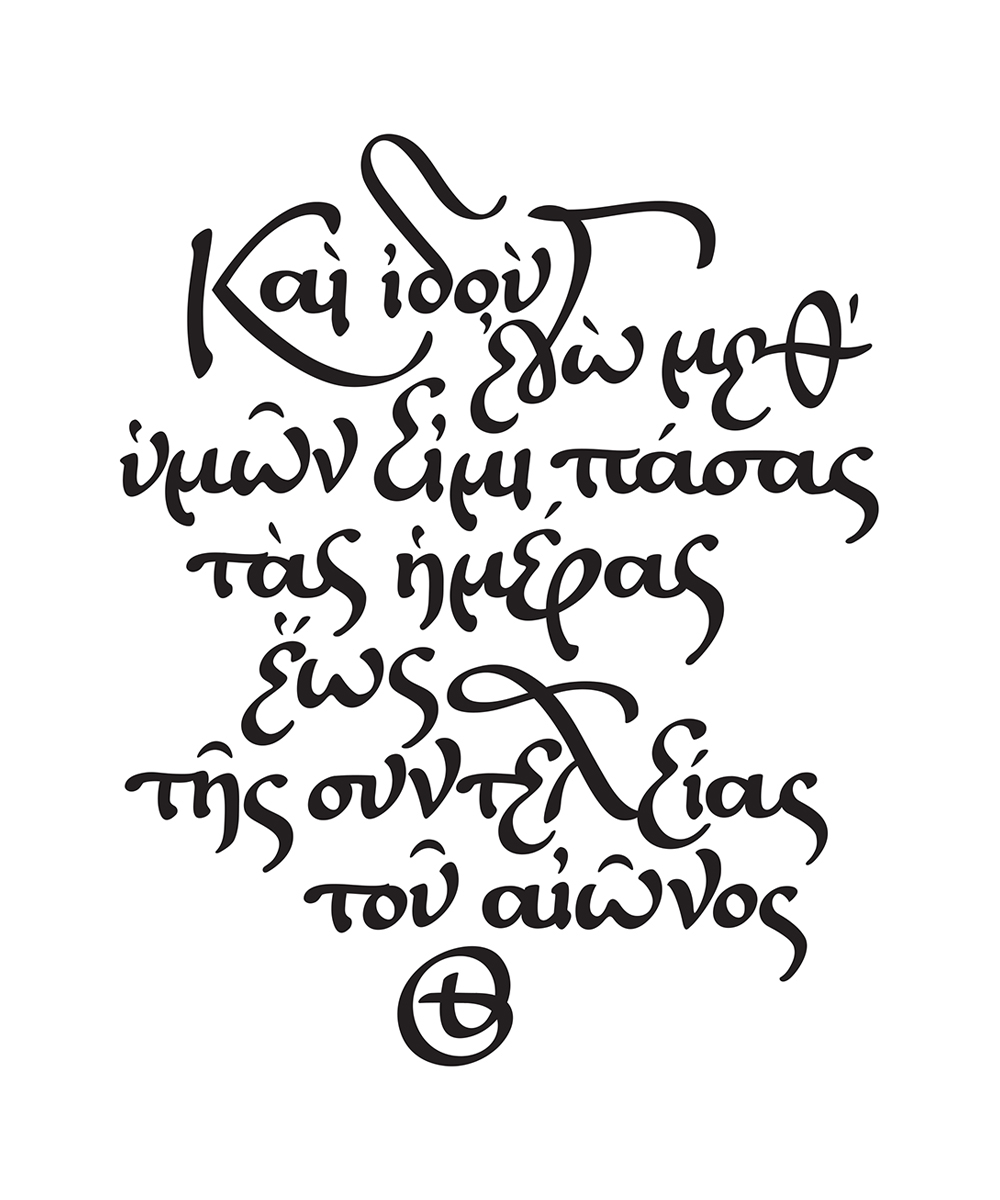 Καὶ ἰδοὺ
ἐγὼ μεθ᾽
ὑμῶν εἰμι πάσας
τὰς ἡμέρας
ἕως
τῆς συντελείας
τοῦ αἰῶνος